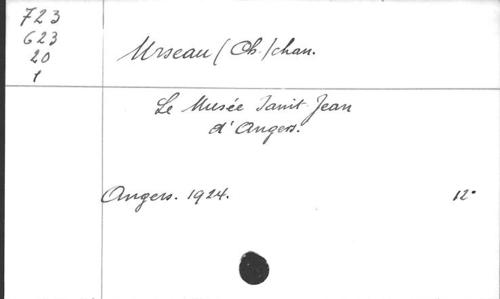 723
623
20
1
Urseau (Ch.) chan.
Le Musée Saint Jean
d'Angers.
Angers. 1924. 12°